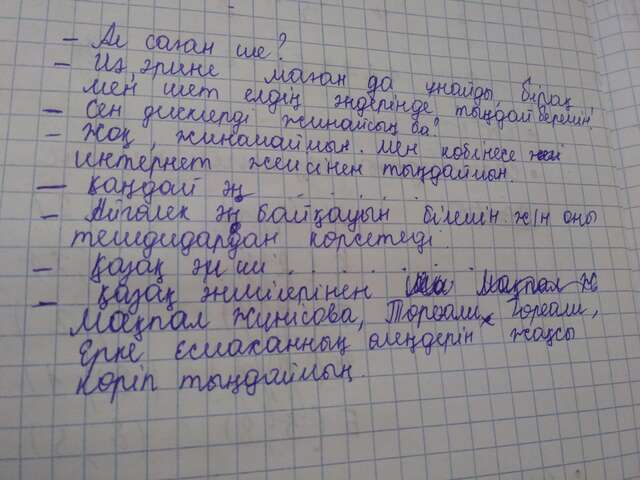 - Ал саған ше?
- Иә, әрине маған да ұнайды, бірақ
мен шет елдің әндерінде тыңдай беремін.
- Сен дискіерді жинайсың ба?
- Жоқ, жинамаймын. Мен көбінесе
интернет желісінен тыңдаймын.
- Қандай ән . . . . .
- Айгөлек ән байқауын білемін. Жін оны
теледидардан көрсетеді.
- Қазақ әнші . . . . .
- Қазақ әншілерінен Мақпал Ж
Мақпал Жүнісова, Төреғали Төреәли,
Ерке Есмаханның өлеңдерін жақсы
көріп тыңдаймын.